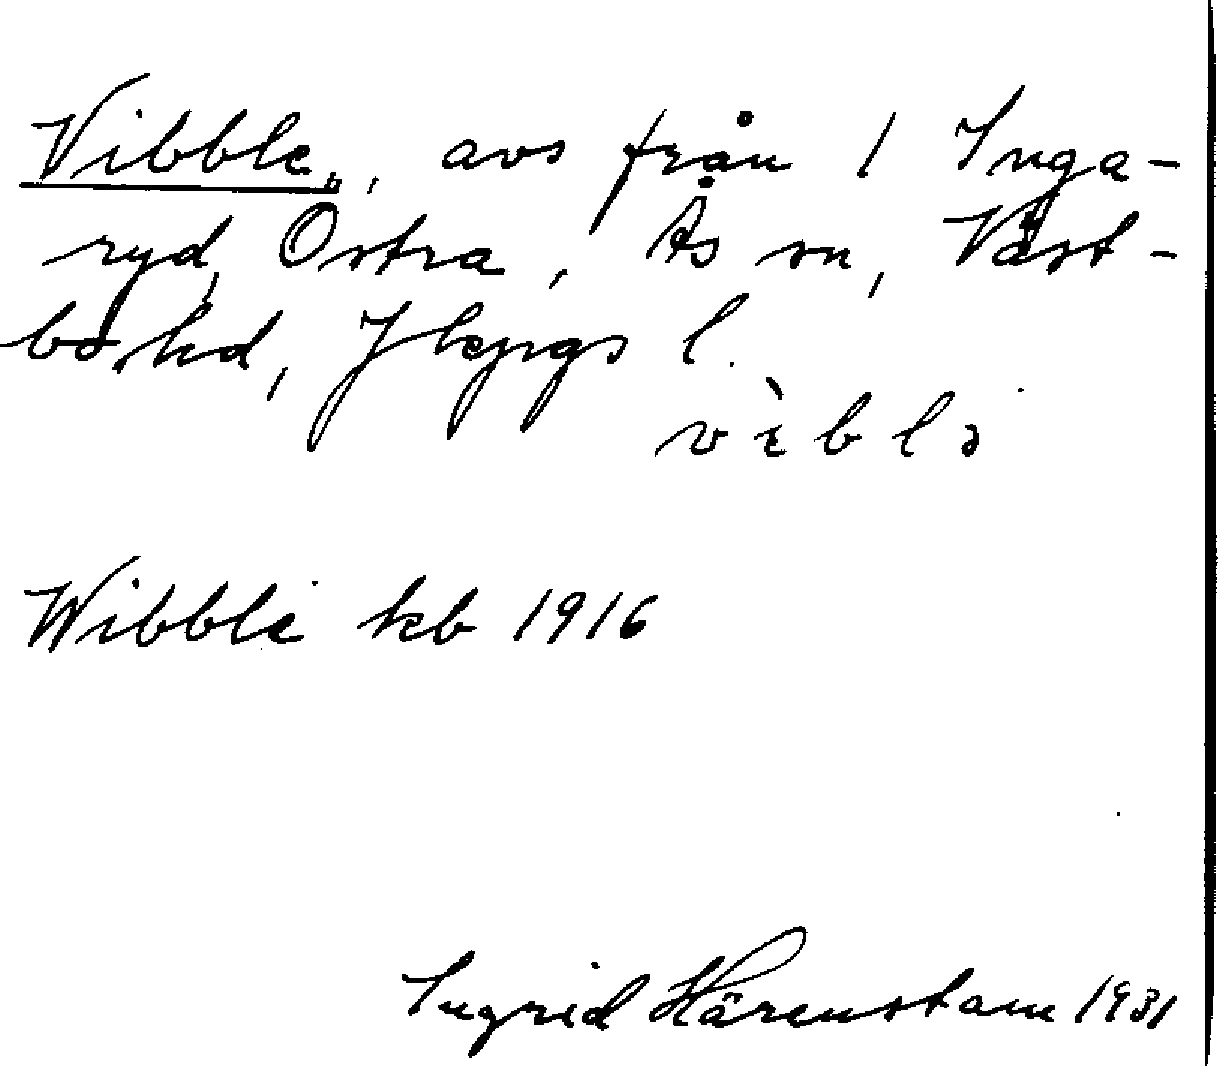 Vibble, avs från 1 Inga-
ryd, Östra, Ås sn, Väst-
bo hd, Jkpgs l.
vèblə
Wibble kb 1916
Ingrid Härenstam 1931